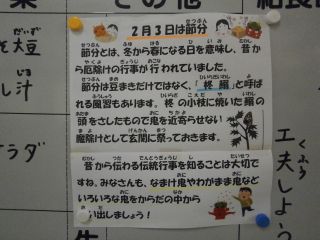 2月3日は節分
節分とは、冬から春になる日を意味し、昔か
ら厄除けの行事が行われていました。
節分は豆まきだけではなく、「柊鰯」と呼ば
れる風習もあります。柊の小枝に焼いた鰯の
頭をさしたもので鬼を近寄らせない
魔除けとして玄関に祭っておきます。
昔から伝わる伝統行事を知ることは大切で
すね。みなさんも、なまけ鬼やわがまま鬼など
いろいろな鬼をからだの中から
い出しましょう!
大豆
し汁
ラダ
工夫しよう